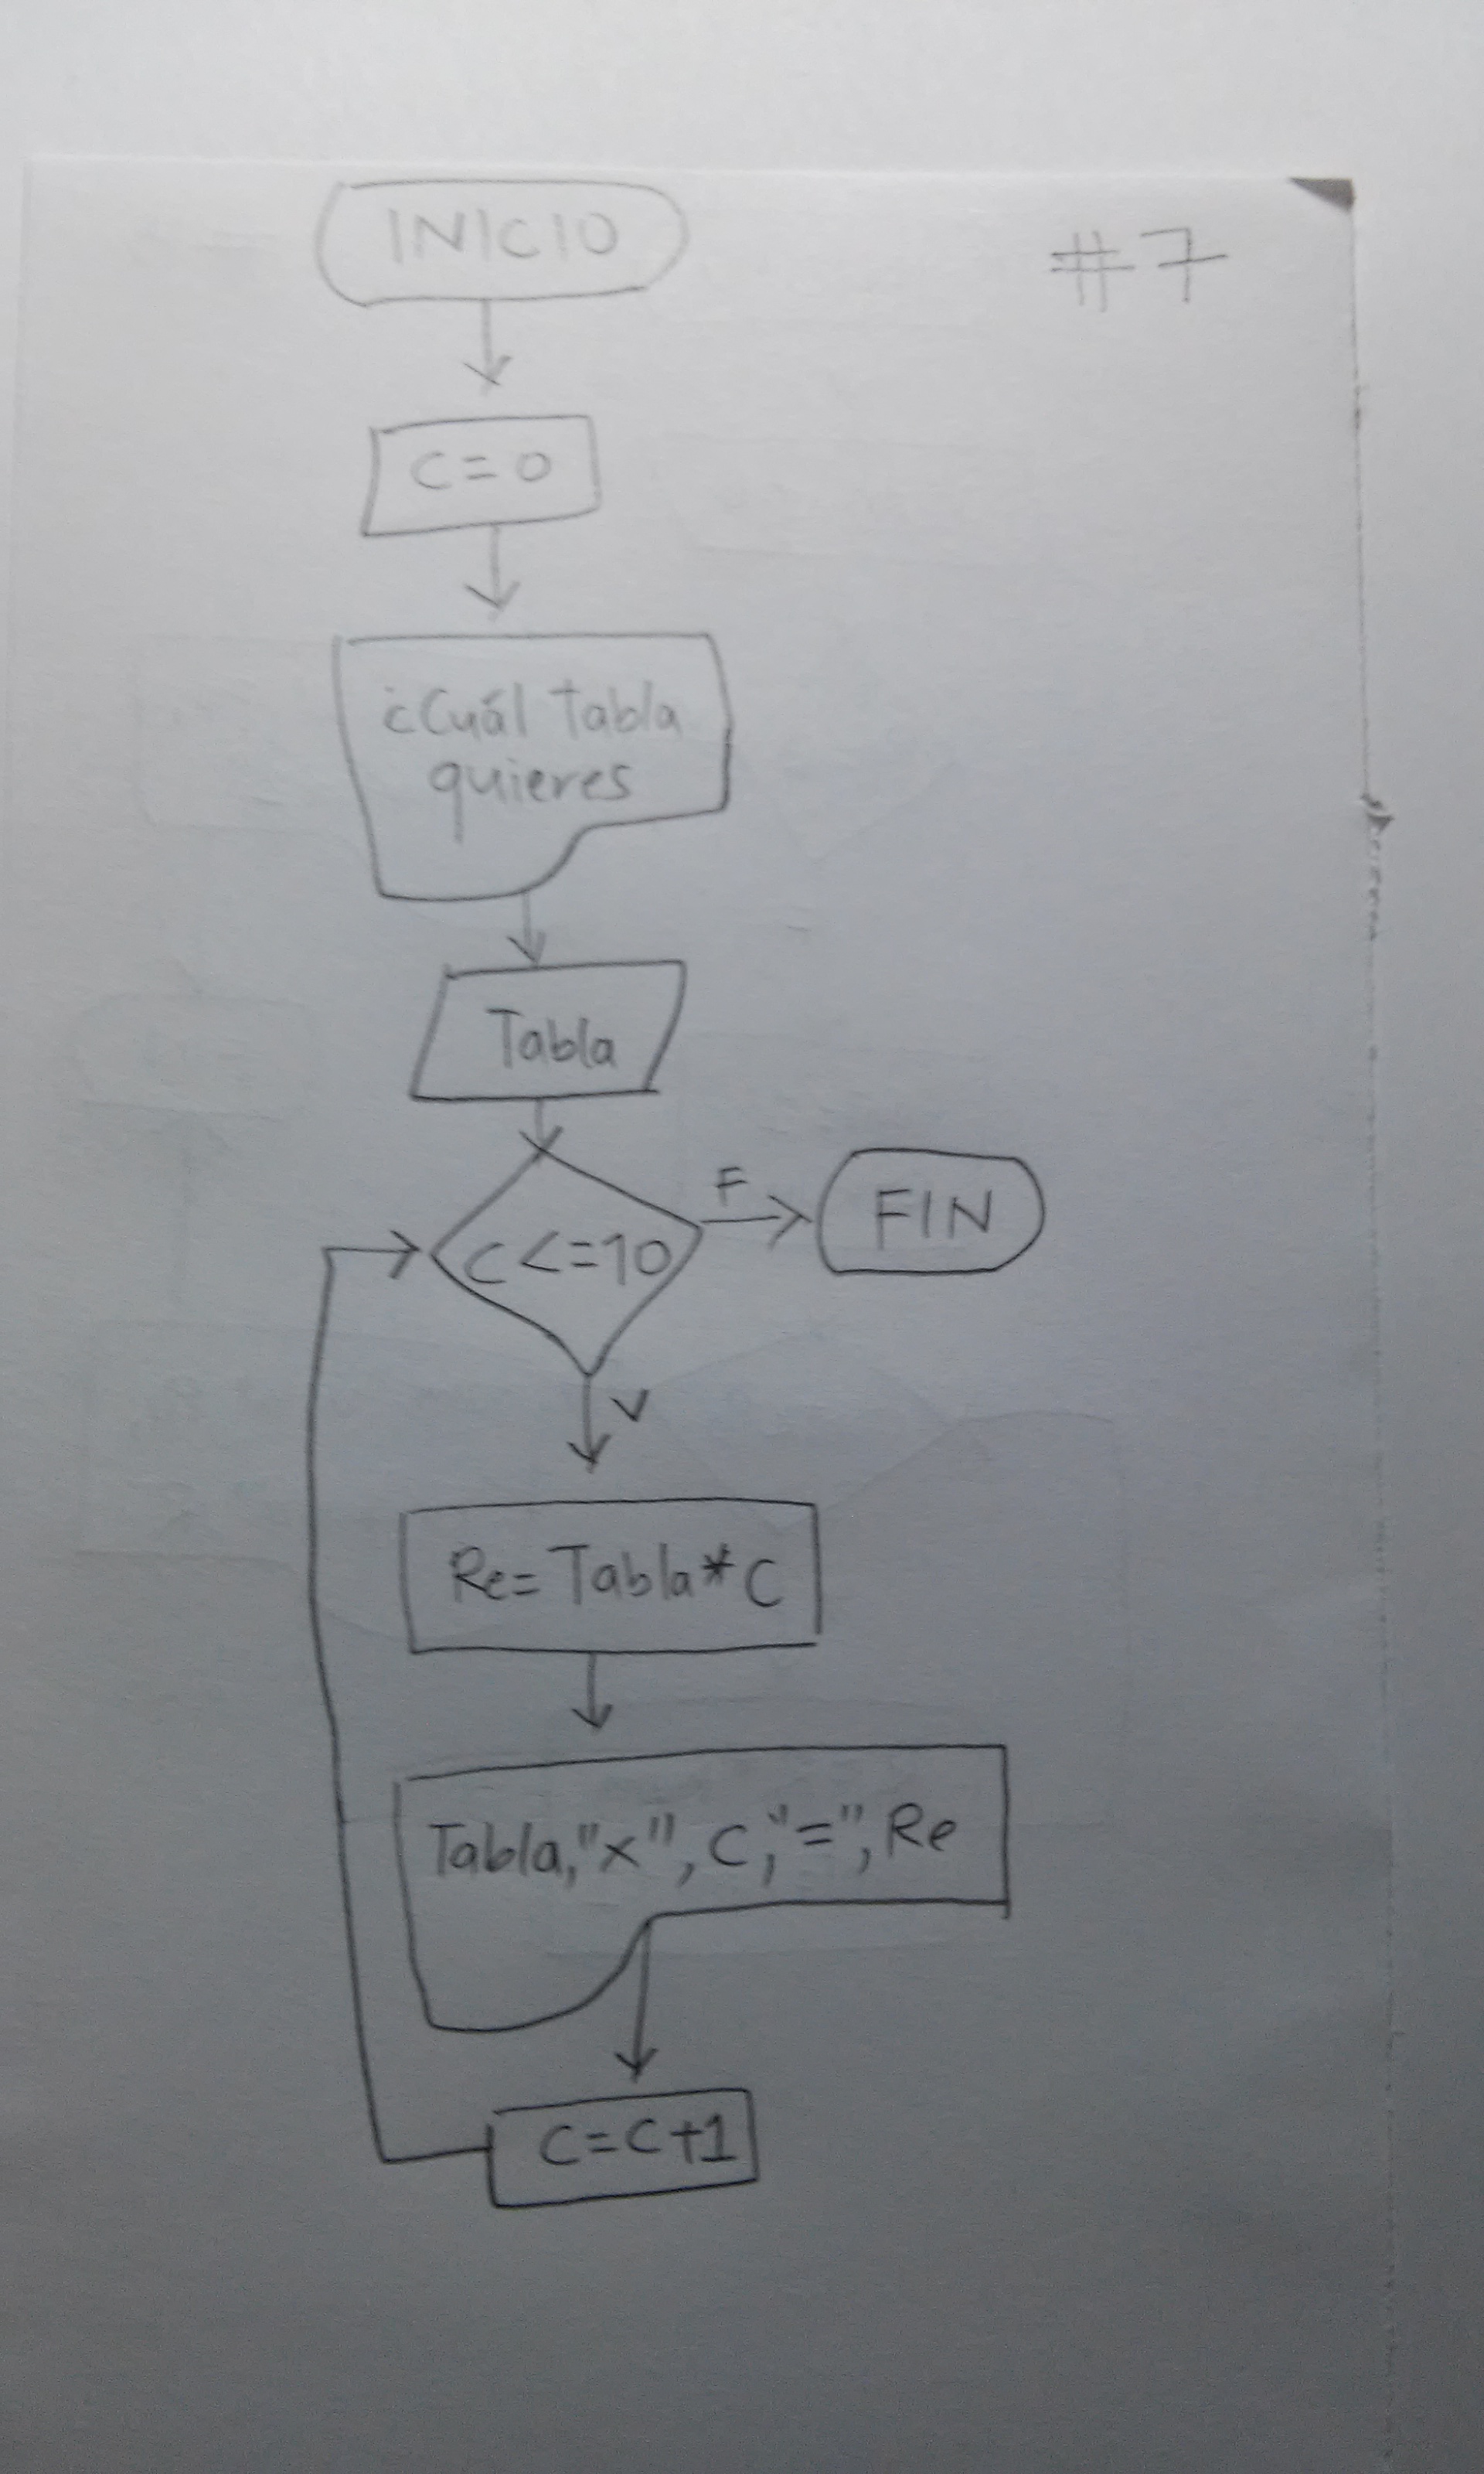 INICIO
#7
C=0
¿Cuál Tabla
quieres
Tabla
C<=10
F
FIN
V
Re=Tabla*C
Tabla,"x",C,"=",Re
C=C+1